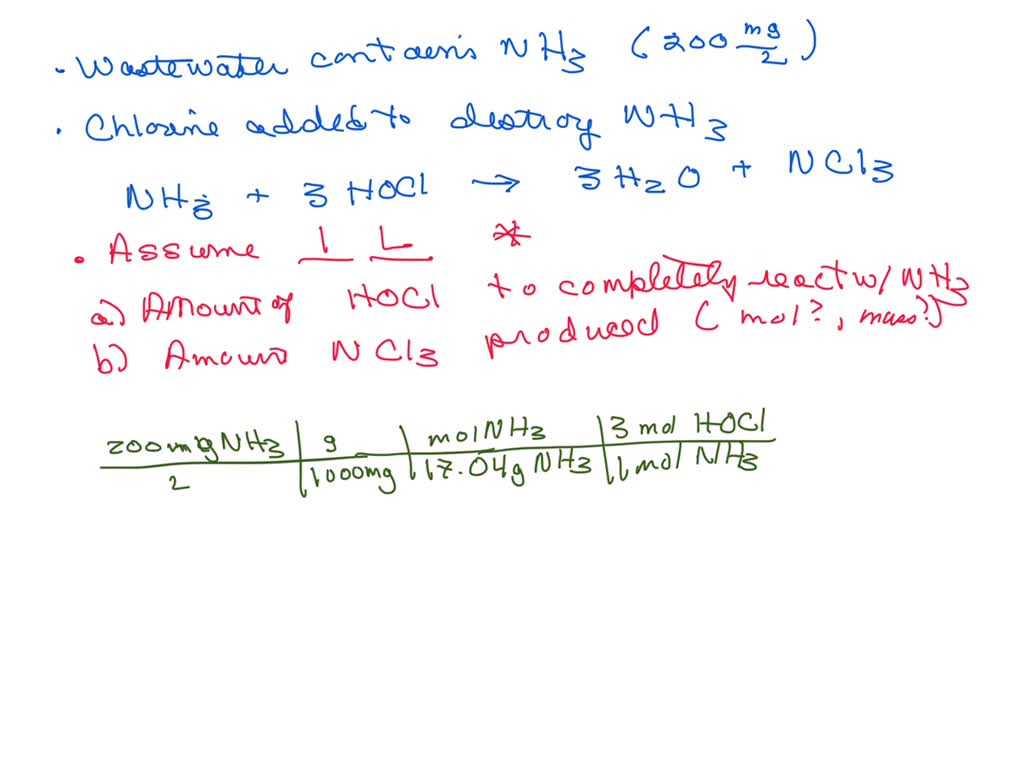 • Wastewater contains NH3 (200 mg/L)
• Chlorine added to destroy NH3
NH3 + 3 HOCl → 3 H2O + NCl3
• Assume 1 L *
a) Amount of HOCl to completely react w/ NH3
b) Amount NCl3 produced (mol?, mass?)
200 mg NH3 | g | mol NH3 | 3 mol HOCl
L | 1000mg | 17.04g NH3 | 1 mol NH3